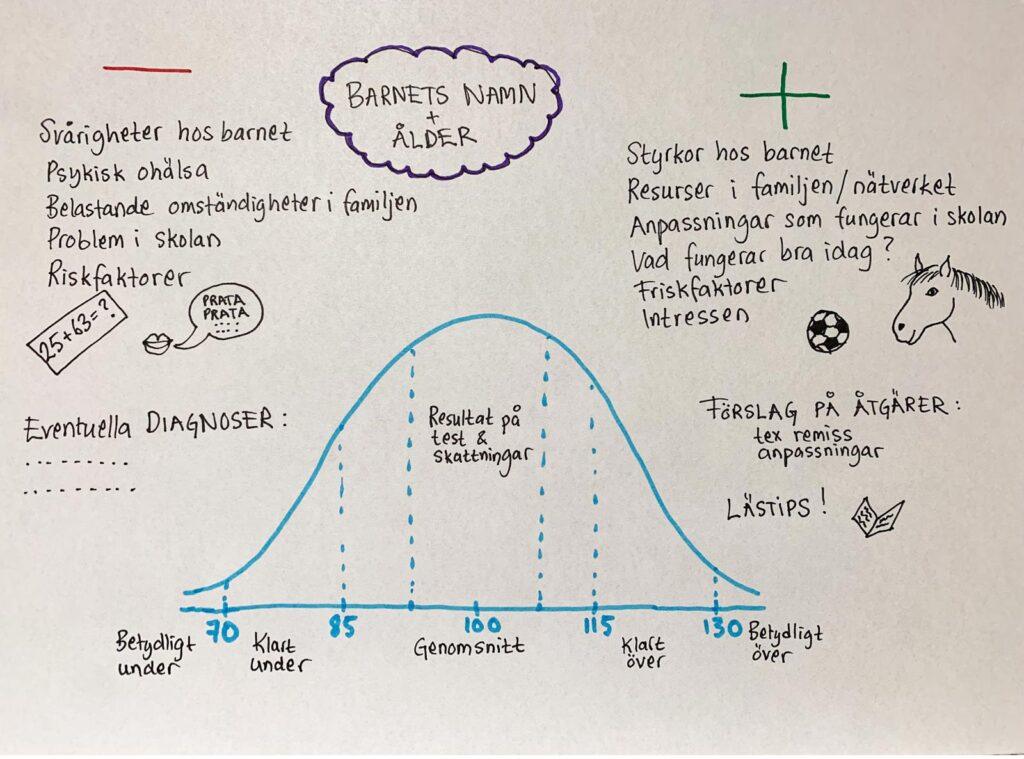 BARNETS NAMN
+
ÅLDER
Svårigheter hos barnet
Psykisk ohälsa
Belastande omständigheter i familjen
Problem i skolan
Riskfaktorer
25+63=?
PRATA
PRATA
Eventuella DIAGNOSER:
Styrkor hos barnet
Resurser i familjen/nätverket
Anpassningar som fungerar i skolan
Vad fungerar bra idag?
Friskfaktorer
Intressen
FÖRSLAG PÅ ÅTGÄRER:
tex remiss
anpassningar
LÄSTIPS!
Resultat på
test &
skattningar
70 85 100 115 130
Betydligt
under
Klart
under
Genomsnitt
Klart
över
Betydligt
över